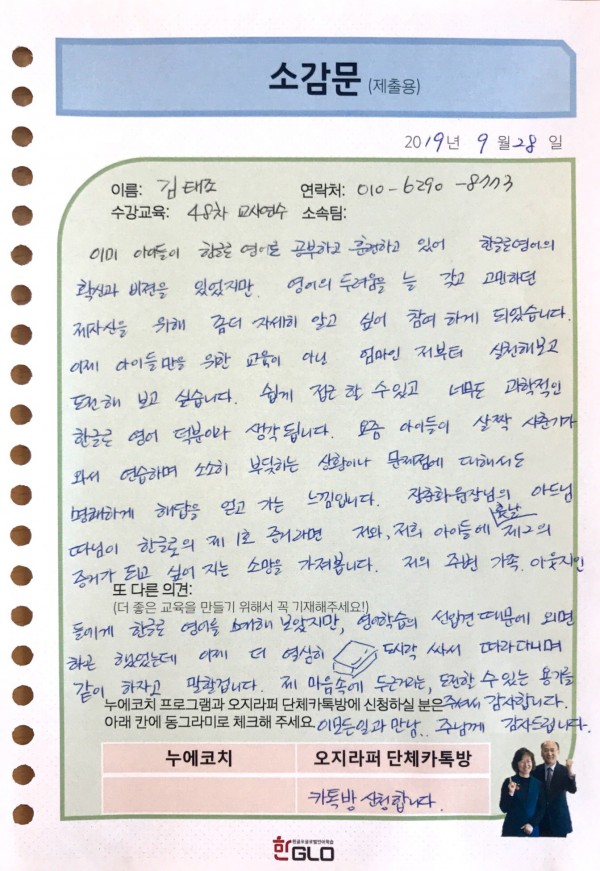 소감문 (제출용)
2019년 9월 28일
이름: 김태조 연락처: 010-6290-8773
수강교육: 48차 교사연수 소속팀:
이미 아이들이 한글로 영어로 공부하고 훈련하고 있어 한글로영어의
확신과 비전을 있었지만, 영어의 두려움을 늘 갖고 고민하던
제자신을 위해 좀더 자세히 알고 싶어 참여 하게 되었습니다.
이제 아이들만을 위한 교육이 아닌 엄마인 저부터 실천해보고
도전해 보고 싶습니다. 쉽게 접근 할 수 있고 너무도 과학적인
한글로 영어 덕분이라 생각 됩니다. 요즘 아이들이 살짝 사춘기가
와서 연습하며 소소히 부딪히는 상황이나 문제점에 대해서도
명쾌하게 해답을 얻고 가는 느낌입니다. 장춘화원장님의 아드님
따님이 한글로의 제 1호 증거라면 저와, 저희 아이들에 훗날 제2의
증거가 되고 싶어 지는 소망을 가져봅니다. 저의 주변 가족, 이웃지인
또 다른 의견:
(더 좋은 교육을 만들기 위해서 꼭 기재해주세요!)
들에게 한글로 영어를 소개해 보았지만, 영어학습의 선입견 때문에 외면
하곤 했었는데 이제 더 열심히 도시락 싸서 따라다니며
같이 하자고 말할겁니다. 제 마음속에 두근거리는, 도전할 수 있는 용기를
누에코치 프로그램과 오지라퍼 단체카톡방에 신청하실 분은 주셔서 감사합니다.
아래 칸에 동그라미로 체크해 주세요. 이모든일과 만남.. 주님께 감사드립니다.
누에코치 오지라퍼 단체카톡방
카톡방 신청합니다.
한GLO